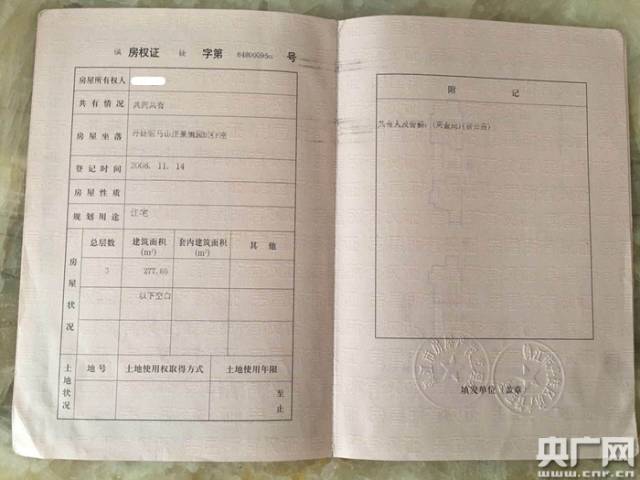 房权证 字第 号
房屋所有权人
共有情况 共同共有
房屋坐落
登记时间 2008. 11. 14
房屋性质
规划用途 住宅
房屋状况
总层数 建筑面积(m²) 套内建筑面积(m²) 其他
3 277.65
以下空白
土地状况
地号 土地使用权取得方式 土地使用年限
至
止
附记
填发单位(盖章)
央广网
www.cnr.cn